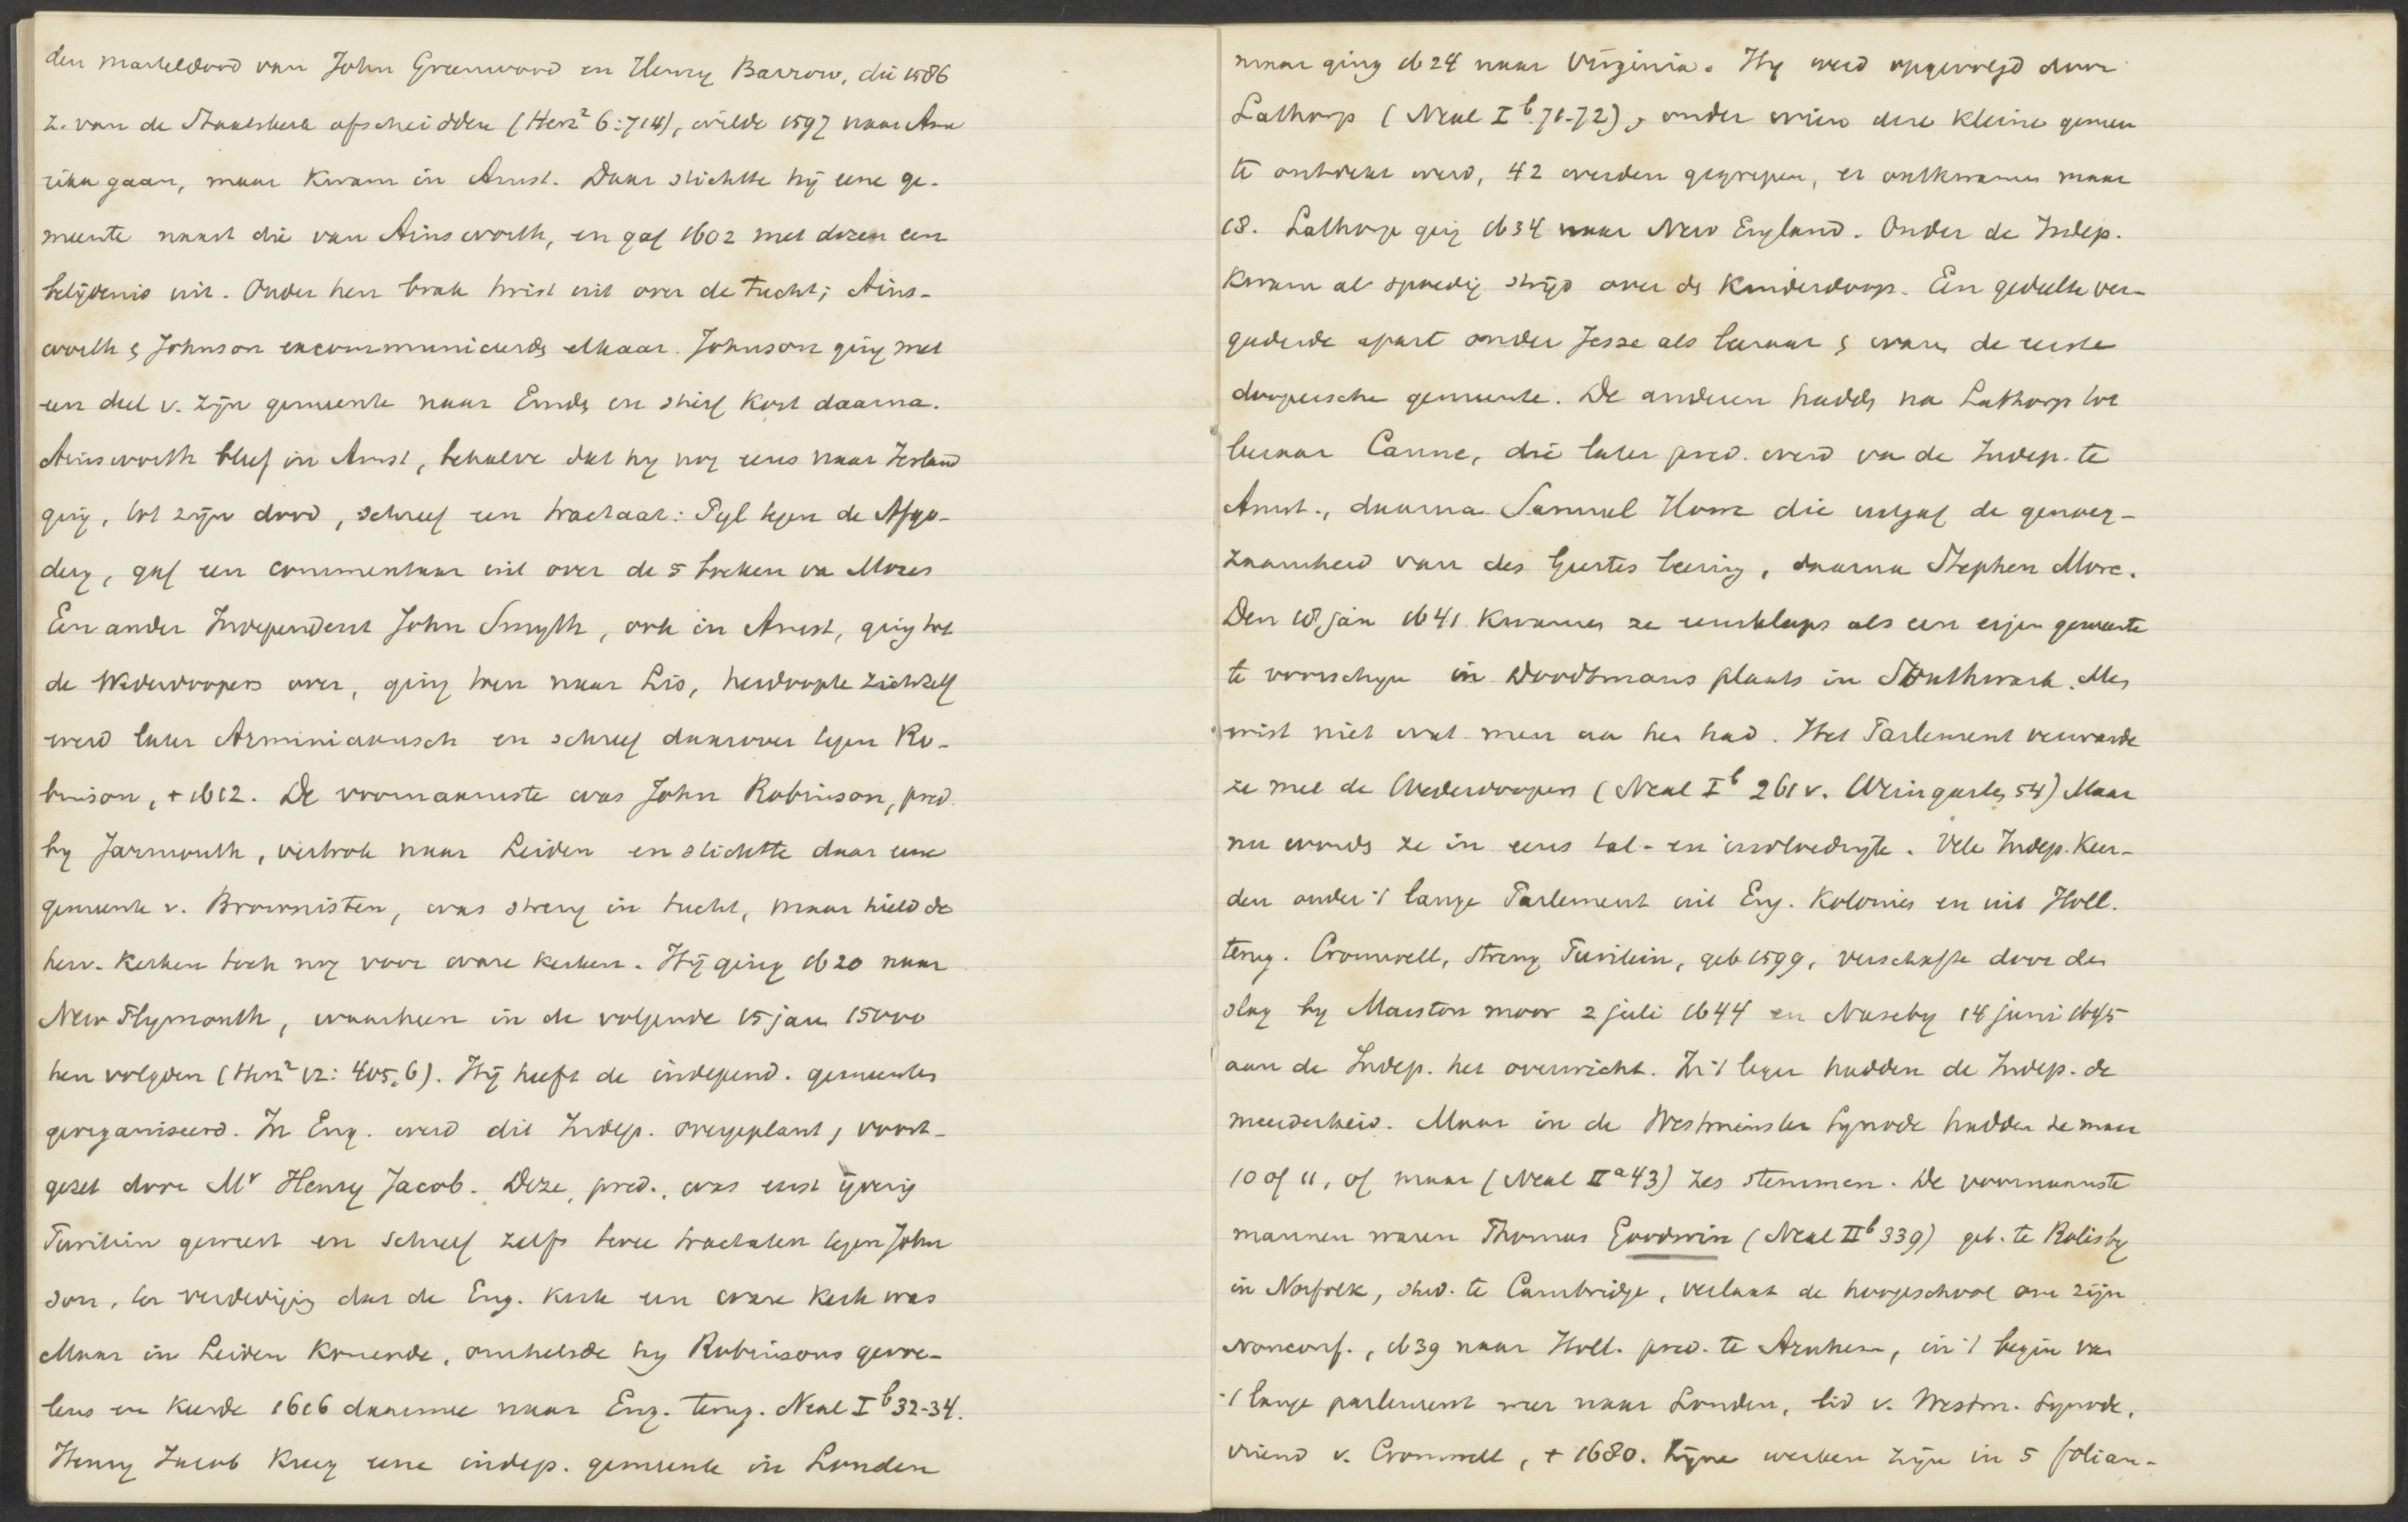 den marteldood van John Greenwood en Henry Barrow, die 1586
z. van de Staatskerk afscheidden (Herz² 6:714), wilde 1597 naar Ame
rika gaan, maar kwam in Amst. Daar stichtte hij eene ge-
meente naast die van Ainsworth, en gaf 1602 met dezen een
belijdenis uit. Onder hen brak twist uit over de tucht; Ains-
worth & Johnson excommuniceerden elkaar. Johnson ging met
een deel v. zijn gemeente naar Emden en stierf kort daarna.
Ainsworth bleef in Amst, behalve dat hy nog eens naar Ierland
ging, tot zijn dood, schreef een tractaat: Pyl tegen de Afgo-
dery, gaf een commentaar uit over de 5 boeken van Mozes
Een ander Independent John Smyth, ook in Amst, ging tot
de Wederdoopers over, ging toen naar Leis, herdoopte zichzelf
werd later Arminiaansch en schreef daarover tegen Ro-
binson, + 1612. De voornaamste was John Robinson, pred.
by Jarmouth, vertrok naar Leiden en stichtte daar eene
gemeente v. Brownisten, was streng in tucht, maar hield de
herv. kerken toch nog voor ware kerken. Hij ging 1620 naar
New Plymouth, waarheen in de volgende 15 jaren 15000
hen volgden (Herz² 12: 405,6). Hij heeft de independ. gemeenten
georganiseerd. In Eng. werd dit Indep. overgeplant, voort-
gezet door Mr Henry Jacob. Deze, pred., was eerst ijverig
Puritein geweest en schreef zelfs twee tractaten tegen John
son, ter verdediging dat de Eng. kerk een ware kerk was
Maar in Leiden komende, omhelsde hy Robinsons gevoe-
lens en keerde 1616 daarmee naar Eng. terug. Neal I b 32-34.
Henry Jacob kreeg eene indep. gemeente in Londen
maar ging 1624 naar Virginia. Hy werd opgevolgd door
Lathorp (Neal I b 71-72), onder wien deze kleine gemeen
te ontdekt werd, 42 werden gegrepen, er ontkwamen maar
18. Lathorp ging 1634 naar New England. Onder de Indep.
kwam al spoedig strijd over de kinderdoop. Een gedeelte ver-
gaderde apart onder Jesse als leeraar & waren de eerste
doopersche gemeente. De anderen hadden na Lathorp tot
leeraar Canne, die later pred. werd van de Indep. te
Amst., daarna Samuel How die uitgaf de genoeg-
zaamheid van des Geestes leering, daarna Stephen More.
Den 18 jan 1641 kwamen ze eensklaps als een eigen gemeente
te voorschijn in Doodtmans plaats in Southwark. Men
wist niet wat men aan hen had. Het Parlement verwarde
ze met de Wederdoopers (Neal I b 261 v. Weingarten 54) Maar
nu worden ze in eens tal- en invloedrijk. Vele Indep. keer-
den onder 't lange Parlement uit Eng. Kolonies en uit Holl.
terug. Cromwell, streng Puritein, geb 1599, verschafte door den
slag by Marston moor 2 juli 1644 en Naseby 14 juni 1645
aan de Indep. het overwicht. In 't leger hadden de Indep. de
meerderheid. Maar in de Westminster Synode hadden ze maar
10 of 11, of maar (Neal II a 43) zes stemmen. De voornaamste
mannen waren Thomas Goodwin (Neal II b 339) geb. te Rolisby
in Norfolk, stud. te Cambridge, verlaat de hoogeschool om zijn
nonconf., 1639 naar Holl. pred. te Arnhem, in 't begin van
't lange parlement weer naar Londen, lid v. Westm. Synode,
vriend v. Cromwell, + 1680. Zijne werken zijn in 5 folian-